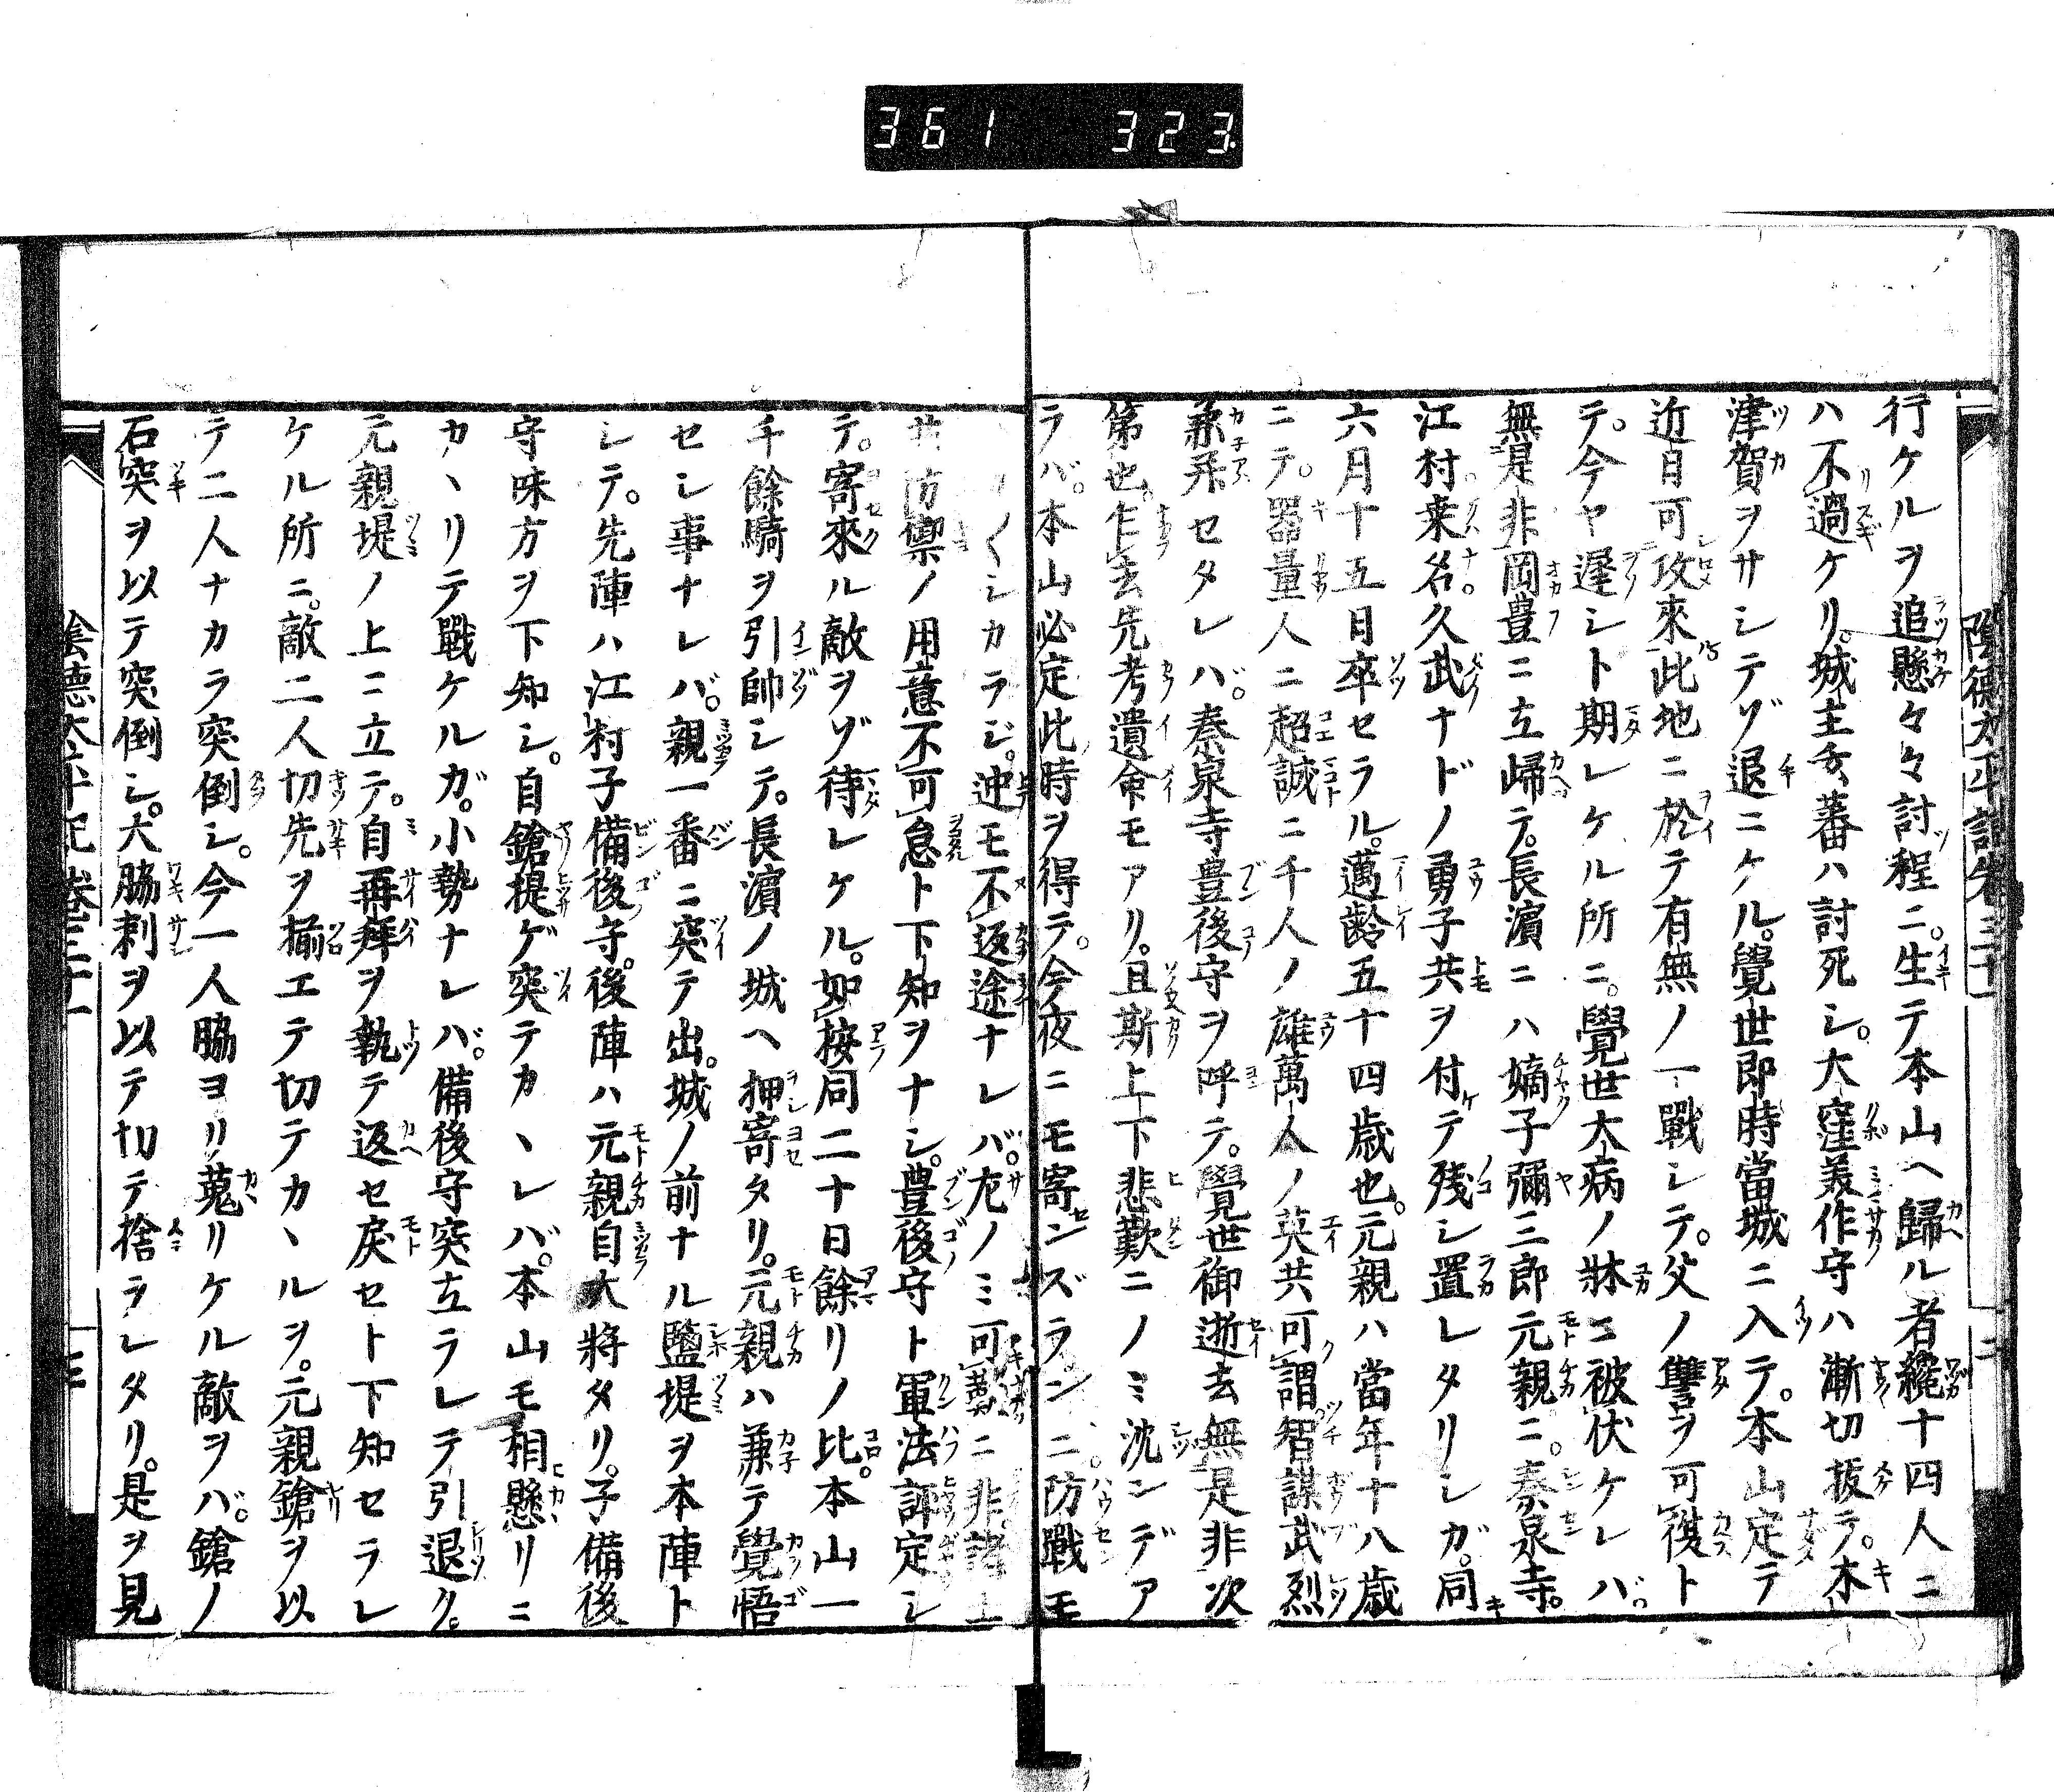 361 323
行ケルヲ追懸々々討程ニ。生テ本山ヘ歸ル者纔十四人ニ
ハ不過ケリ。城主玄蕃ハ討死シ。大窪美作守ハ漸切拔テ。木
津賀ヲサシテゾ退ニケル。覺世即時當城ニ入テ。本山定テ
近日可攻來此地ニ於テ有無ノ一戰シテ。父ノ讐ヲ可復ト
テ。今ヤ遲シト期レケル所ニ。覺世大病ノ牀ニ被伏ケレバ。
無是非岡豊ニ立歸テ。長濱ニハ嫡子彌三郎元親ニ。秦泉寺。
江村桒名久武ナドノ勇子共ヲ付テ残シ置レタリシガ。同
六月十五日卒セラル。邁齡五十四歳也。元親ハ當年十八歳
ニテ。器量人ニ超誠ニ千人ノ雄萬人ノ英共可謂智謀武烈
兼備セタレバ。秦泉寺豊後守ヲ呼テ。覺世御逝去無是非次
第也乍去先考遺命モアリ。且斯上下悲歎ニノミ沈ンデア
ラバ。本山必定此時ヲ得テ。今夜ニモ寄ンズランニ。防戰モ
シカラジ。迚モ不返途ナレバ。左ノミ可歎ニ非諸士
防禦ノ用意不可怠ト下知ヲナシ。豊後守ト軍法評定シ
テ。寄來ル敵ヲゾ待レケル。如按同二十日餘リノ比。本山一
千餘騎ヲ引帥シテ。長濱ノ城ヘ押寄タリ。元親ハ兼テ覺悟
セシ事ナレバ。親一番ニ突テ出。城ノ前ナル鹽堤ヲ本陣ト
シテ。先陣ハ江村子備後守。後陣ハ元親自大將タリ。子備後
守味方ヲ下知シ。自鎗提ゲ突テカヽレバ。本山モ相懸リニ
カヽリテ戰ケルガ。小勢ナレバ。備後守突立ラレテ引退ク。
元親堤ノ上ニ立テ。自再拜ヲ執テ返セ戻セト下知セラレ
ケル所ニ。敵二人切先ヲ揃エテ切テカヽルヲ。元親鎗ヲ以
テ二人ナカラ突倒シ。今一人脇ヨリ蒐リケル敵ヲバ。鎗ノ
石突ヲ以テ突倒シ。大脇刺ヲ以テ切テ捨ラレタリ。是ヲ見
陰德太平記卷三十一 二
陰德太平記卷三十一 三